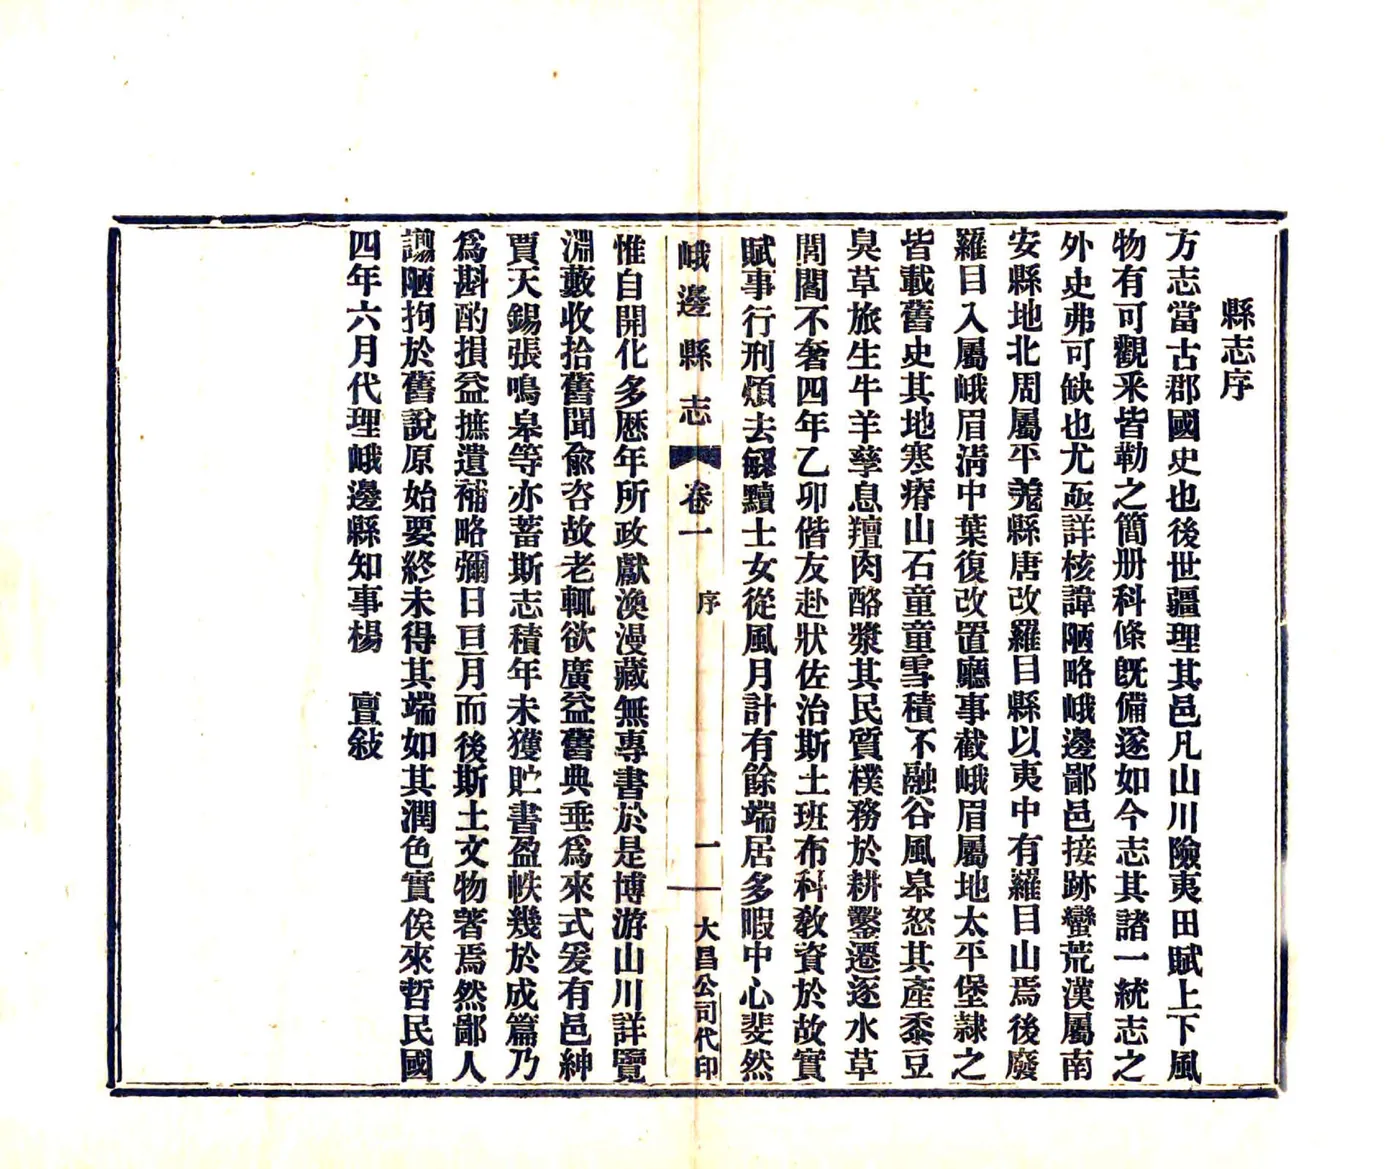 縣志序
方志當古郡國史也後世疆理其邑凡山川險夷田賦上下風
物有可觀釆皆勒之簡册科條旣備遂如今志其諸一統志之
外史弗可缺也尤亟詳核諱陋略峨邊鄙邑接跡蠻荒漢屬南
安縣地北周屬平羗縣唐改羅目縣以夷中有羅目山焉後廢
羅目入屬峨眉淸中葉復改置廳事截峨眉屬地太平堡隷之
皆載舊史其地寒瘠山石童童雪積不融谷風皋怒其產黍豆
臭草旅生牛羊孳息羶肉酪漿其民質樸務於耕鑿遷逐水草
閭閻不奢四年乙卯偕友赴狀佐治斯土班布科敎資於故實
賦事行刑煩去觧黷士女從風月計有餘端居多暇中心斐然
峨邊縣志 卷一 序 一 大昌公司代印
惟自開化多歷年所政獻渙漫藏無專書於是博游山川詳覽
淵藪收拾舊聞僉咨故老輒欲廣益舊典垂爲來式爰有邑紳
賈天錫張鳴皋等亦蓄斯志積年未獲貯書盈帙幾於成篇乃
爲斟酌損益摭遺補略彌日亘月而後斯土文物著焉然鄙人
譾陋拘於舊說原始要終未得其端如其潤色實俟來哲民國
四年六月代理峨邊縣知事楊 亶敍